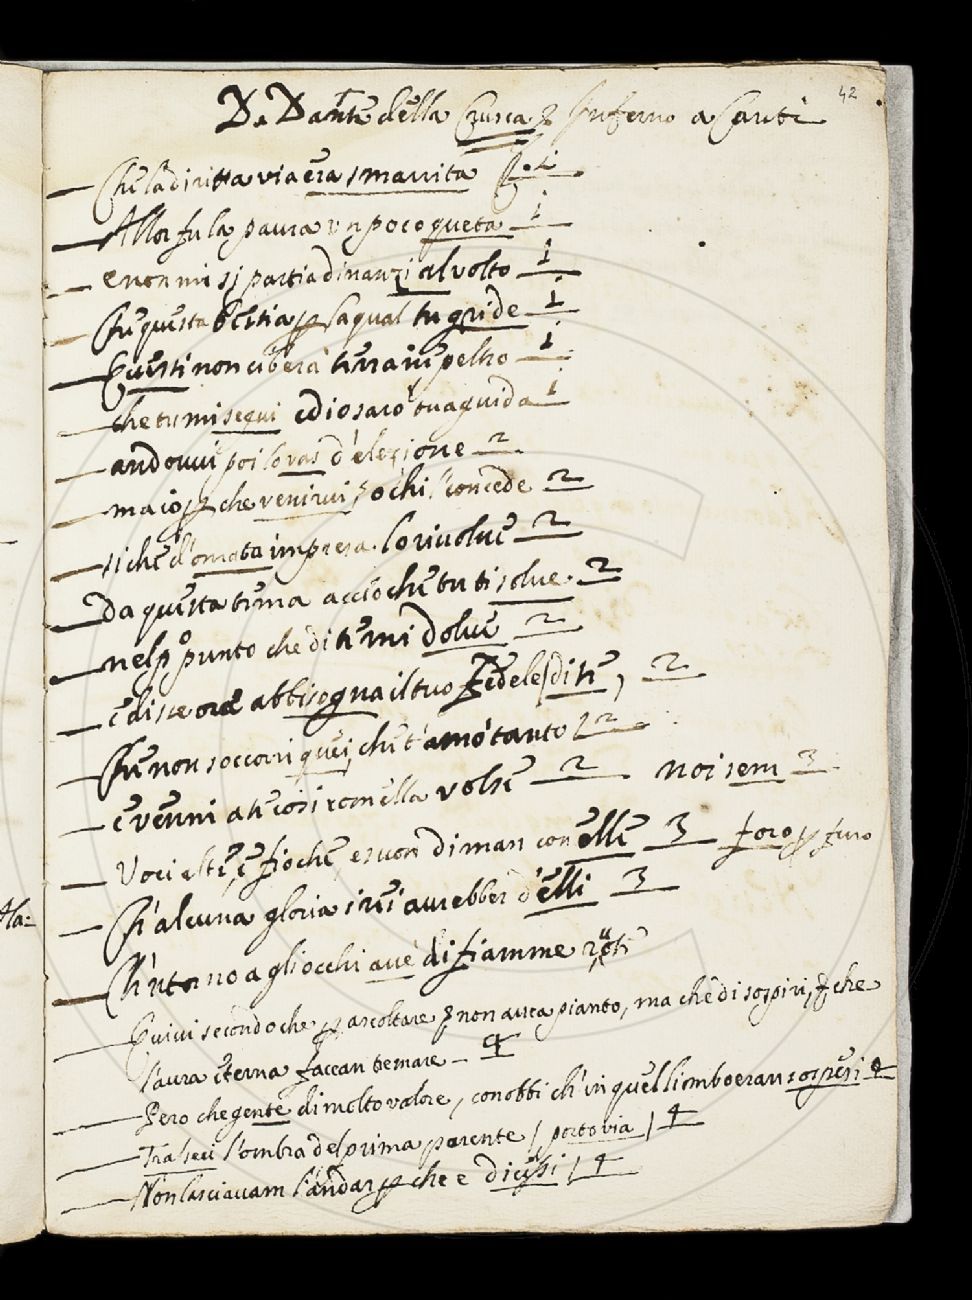 42
D. Dante della Crusca Inferno a Canti
Che la diritta via era smarrita 1
Allor fu la paura un poco queta 1
e non mi si partia dinanzi al volto 1
Che questa bestia p laqual tu gride 1
Questi non ciberà terra ne peltro 1
che tu mi segui ed io saro tua guida 1
andovvi poi lo vas d'elezione 2
ma io p che venirvi, o chi 'l concede 2
si che d'onrata impresa lo rivolve 2
da questa tema accio che tu ti solve. 2
nel po punto che di te mi dolve 2
e disse ora abbisogna il tuo fedele / di te, 2
Che non soccorri quei, che t'amò tanto / 2
e venni a te cosi com ella volse 2 noi sem 3
Voci alte, e fioche, e suon di man con elle 3 foro p furo
Ch'alcuna gloria i rei aurebber d'elli 3
Ch'ntorno a gli occhi ave di fiamme rote
Quivi secondo che p ascoltare non avea pianto, ma che di sospiri, che
l'aura eterna facean tremare - 4
Pero che gente di molto valore, conobbi ch'in quel limbo eran sospesi 4
Trasseci l'ombra del primo parente / porto via / 4
Non lasciavam l'andar p che e dicessi / 4
Ala=